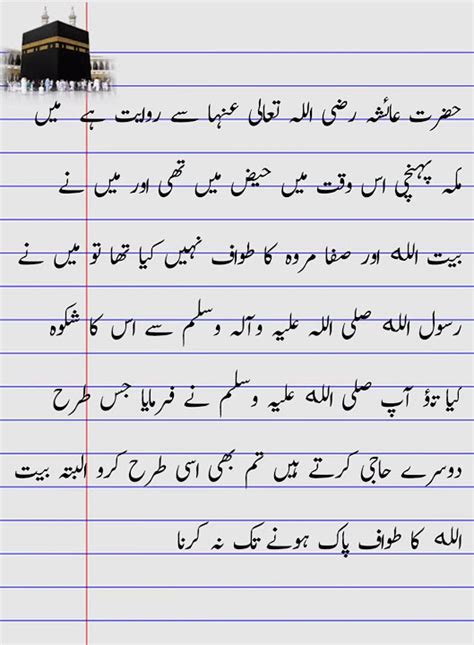 حضرت عائشہ رضی اللہ تعالی عنہا سے روایت ہے میں
مکہ پہنچی اس وقت میں حیض میں تھی اور میں نے
بیت اللہ اور صفا مروہ کا طواف نہیں کیا تھا تو میں نے
رسول اللہ صلی اللہ علیہ وآلہ وسلم سے اس کا شکوہ
کیا تؤ آپ صلی اللہ علیہ وسلم نے فرمایا جس طرح
دوسرے حاجی کرتے ہیں تم بھی اسی طرح کرو البتہ بیت
اللہ کا طواف پاک ہونے تک نہ کرنا